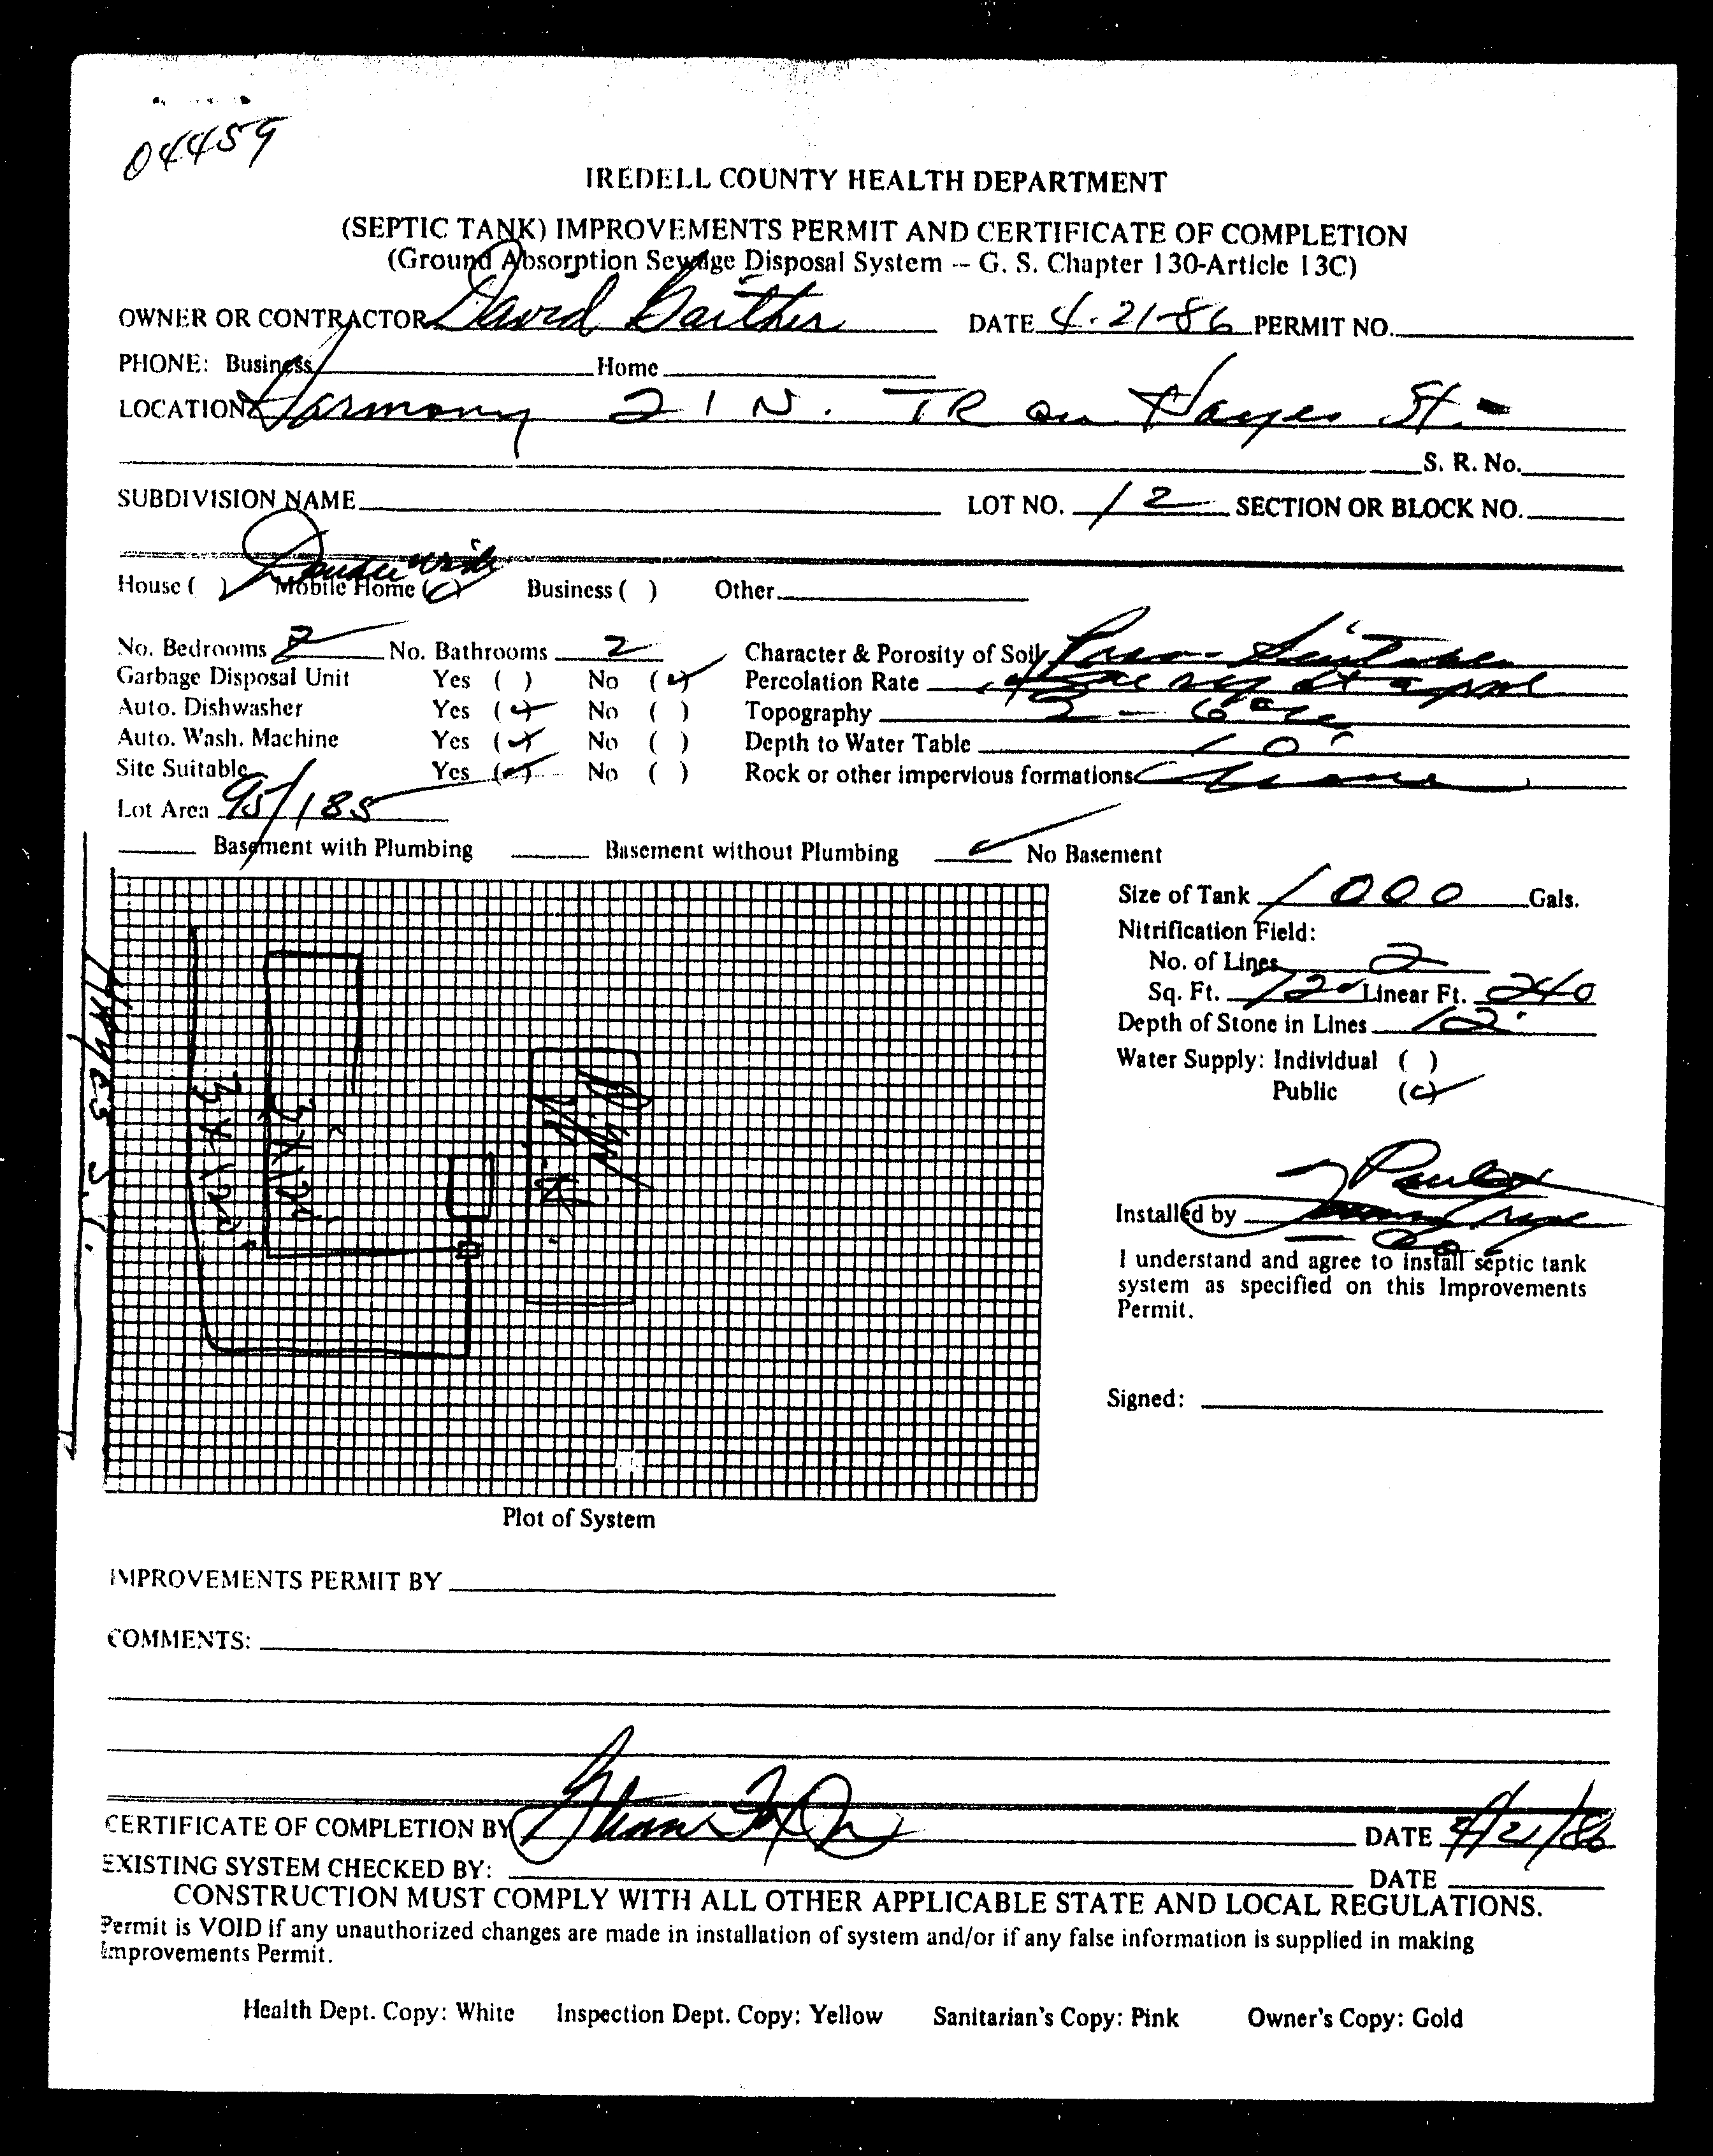 04459
IREDELL COUNTY HEALTH DEPARTMENT
(SEPTIC TANK) IMPROVEMENTS PERMIT AND CERTIFICATE OF COMPLETION
(Ground Absorption Sewage Disposal System -- G. S. Chapter 130-Article 13C)
OWNER OR CONTRACTOR David Gaither DATE 4-21-86 PERMIT NO.
PHONE: Business Home
LOCATION Harmony 21 N. TR on Hayes St.
S. R. No.
SUBDIVISION NAME LOT NO. 12 SECTION OR BLOCK NO.
Double Wide
House ( ) Mobile Home (✓) Business ( ) Other
No. Bedrooms 2 No. Bathrooms 2 Character & Porosity of Soil
Garbage Disposal Unit Yes ( ) No (✓) Percolation Rate
Auto. Dishwasher Yes (✓) No ( ) Topography 2 - 6
Auto. Wash. Machine Yes (✓) No ( ) Depth to Water Table 10'
Site Suitable Yes (✓) No ( ) Rock or other impervious formations
Lot Area 95/185
Basement with Plumbing Basement without Plumbing ✓ No Basement
Size of Tank 1000 Gals.
Nitrification Field:
No. of Lines 2
Sq. Ft. 720 Linear Ft. 240
Depth of Stone in Lines 12"
Water Supply: Individual ( )
Public (✓)
HAYES ST.
3 X 120'
3 X 120'
Installed by
I understand and agree to install septic tank
system as specified on this Improvements
Permit.
Signed:
Plot of System
IMPROVEMENTS PERMIT BY
COMMENTS:
CERTIFICATE OF COMPLETION BY DATE 4/21/86
EXISTING SYSTEM CHECKED BY: DATE
CONSTRUCTION MUST COMPLY WITH ALL OTHER APPLICABLE STATE AND LOCAL REGULATIONS.
Permit is VOID if any unauthorized changes are made in installation of system and/or if any false information is supplied in making
Improvements Permit.
Health Dept. Copy: White Inspection Dept. Copy: Yellow Sanitarian's Copy: Pink Owner's Copy: Gold